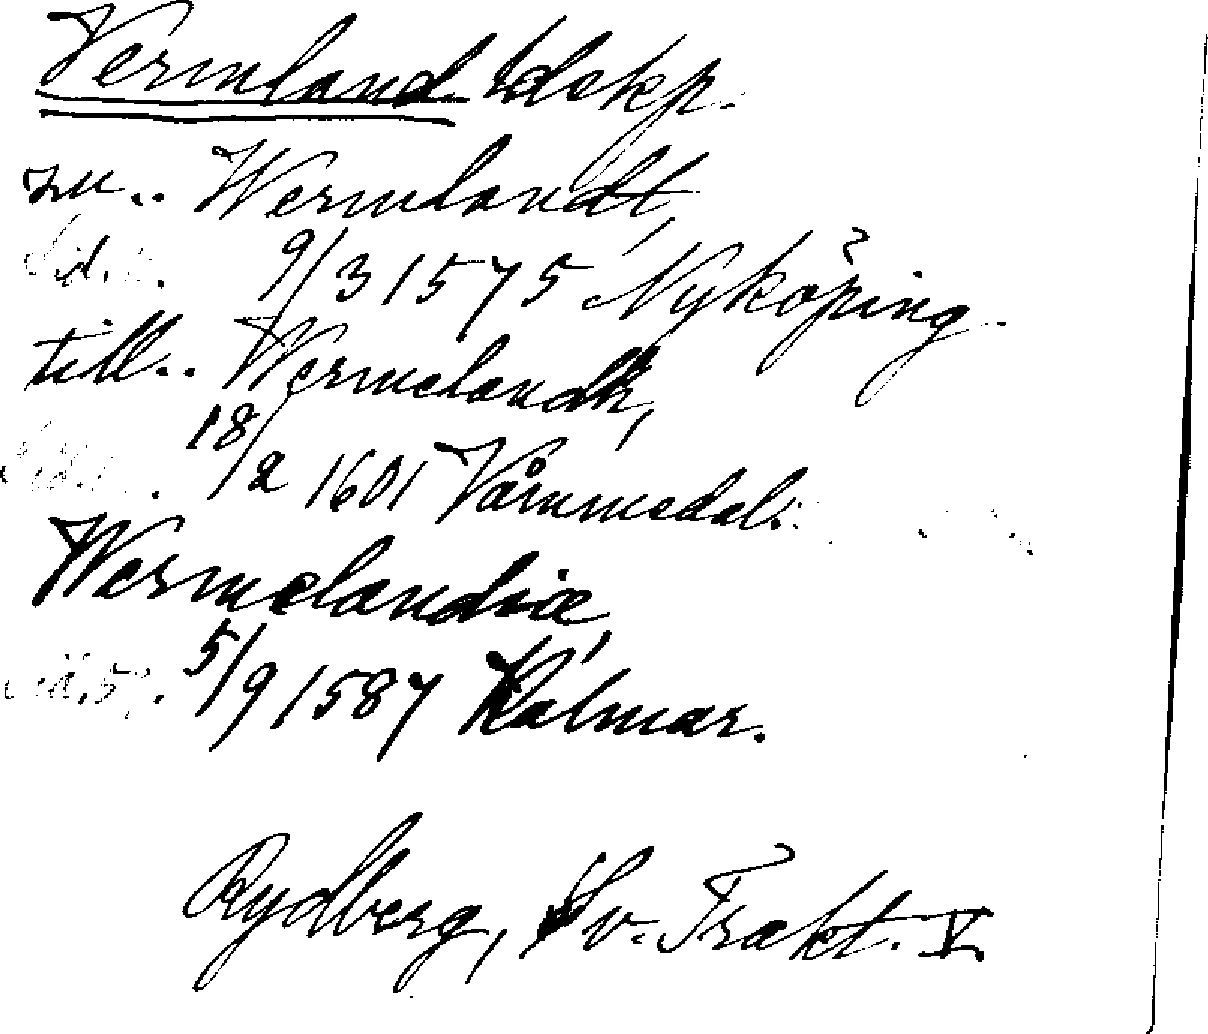 Vermland ldskp.
zu.. Wermlandt,
Sid. 9/3 1575 Nyköping
till.. Wermelandh,
18/2 1601 Vårnmedal.
Wermelandiæ
5/9 1587 Kalmar.
Rydberg, Sv. Trakt. V.